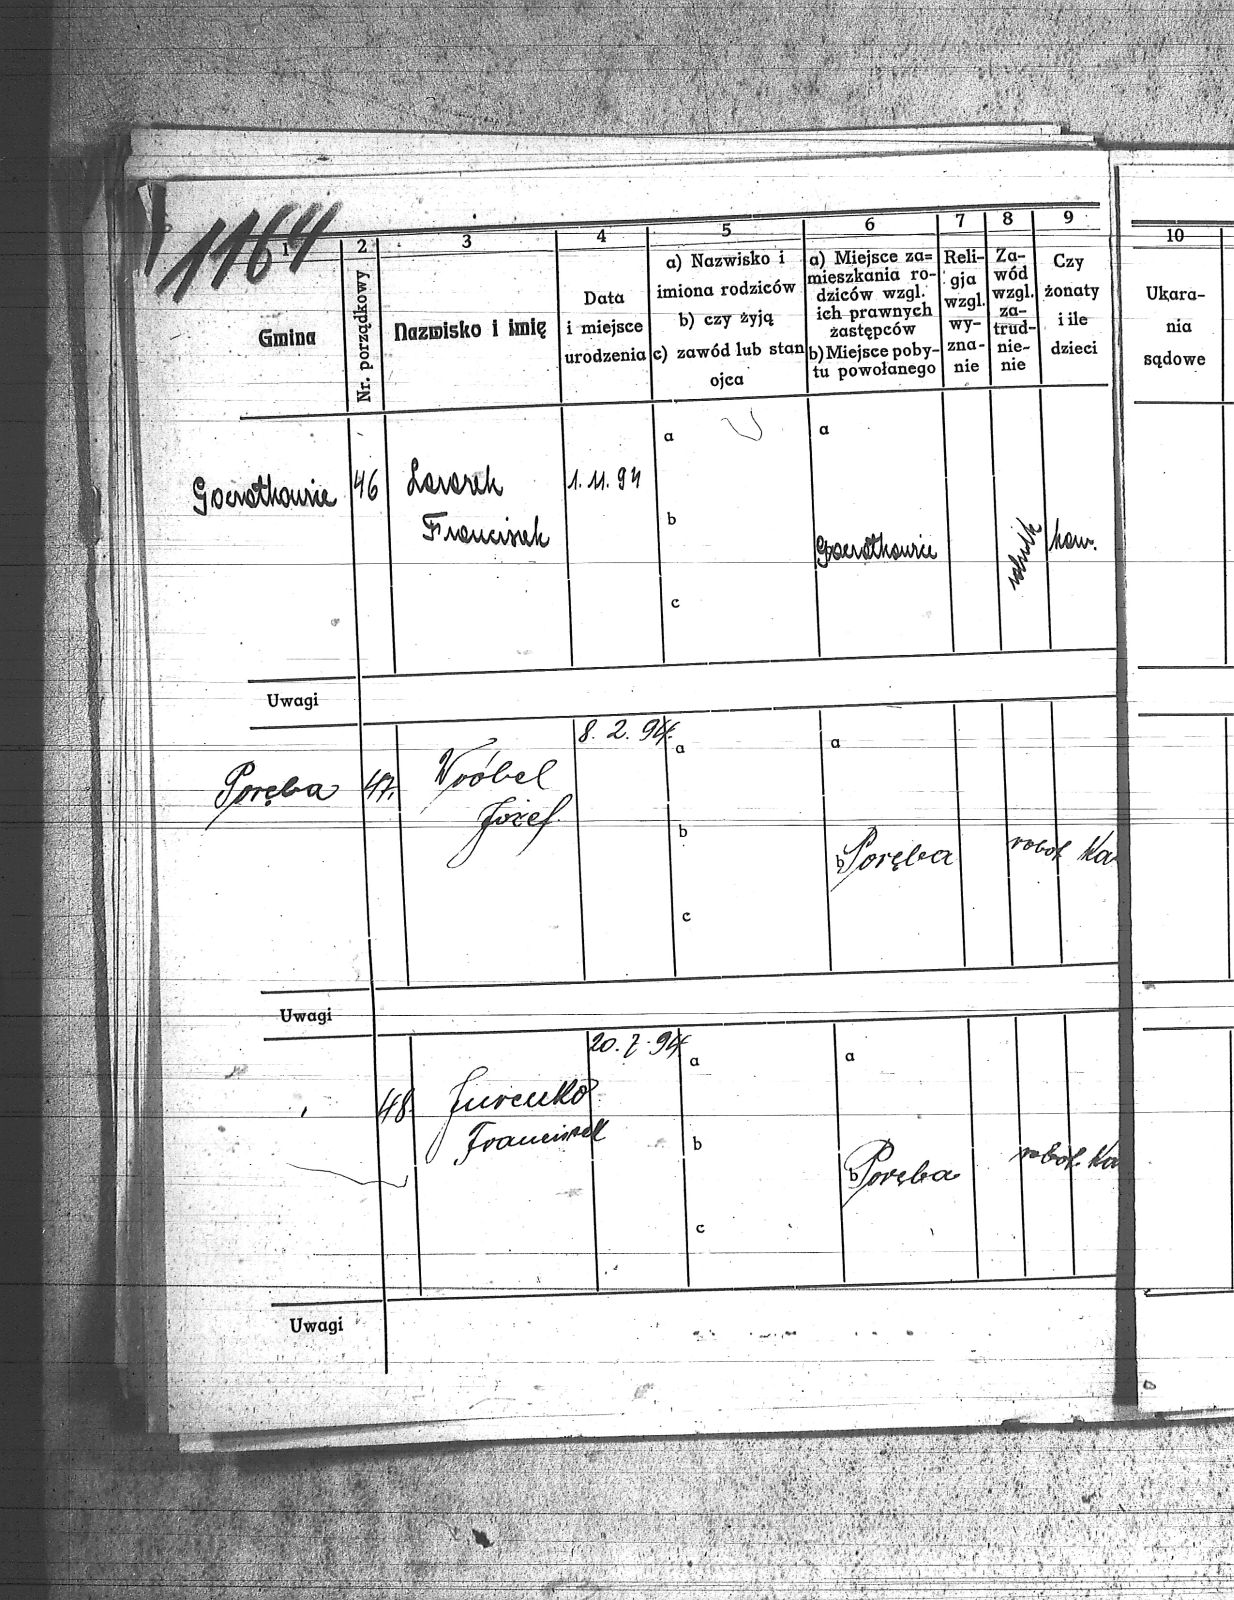 1164
1 2 3 4 5 6 7 8 9 10
Gmina
Nr. porządkowy
Nazwisko i imię
Data
i miejsce
urodzenia
a) Nazwisko i
imiona rodziców
b) czy żyją
c) zawód lub stan
ojca
a) Miejsce za=
mieszkania ro-
dziców wzgl.
ich prawnych
zastępców
b) Miejsce poby-
tu powołanego
Reli-
gja
wzgl.
wy-
zna-
nie
Za-
wód
wzgl.
za-
trud-
nie-
nie
Czy
żonaty
i ile
dzieci
Ukara-
nia
sądowe
46
1.11.94
Franciszek
rolnik
kaw.
a
b
c
a
Uwagi
Poręba
47.
Wróbel
Józef
8. 2. 94.
a
b
c
a
b Poręba
robot.
Ka
Uwagi
48.
Franciszek
20. 7. 94
a
b
c
a
b Poręba
robot.
Ka
Uwagi